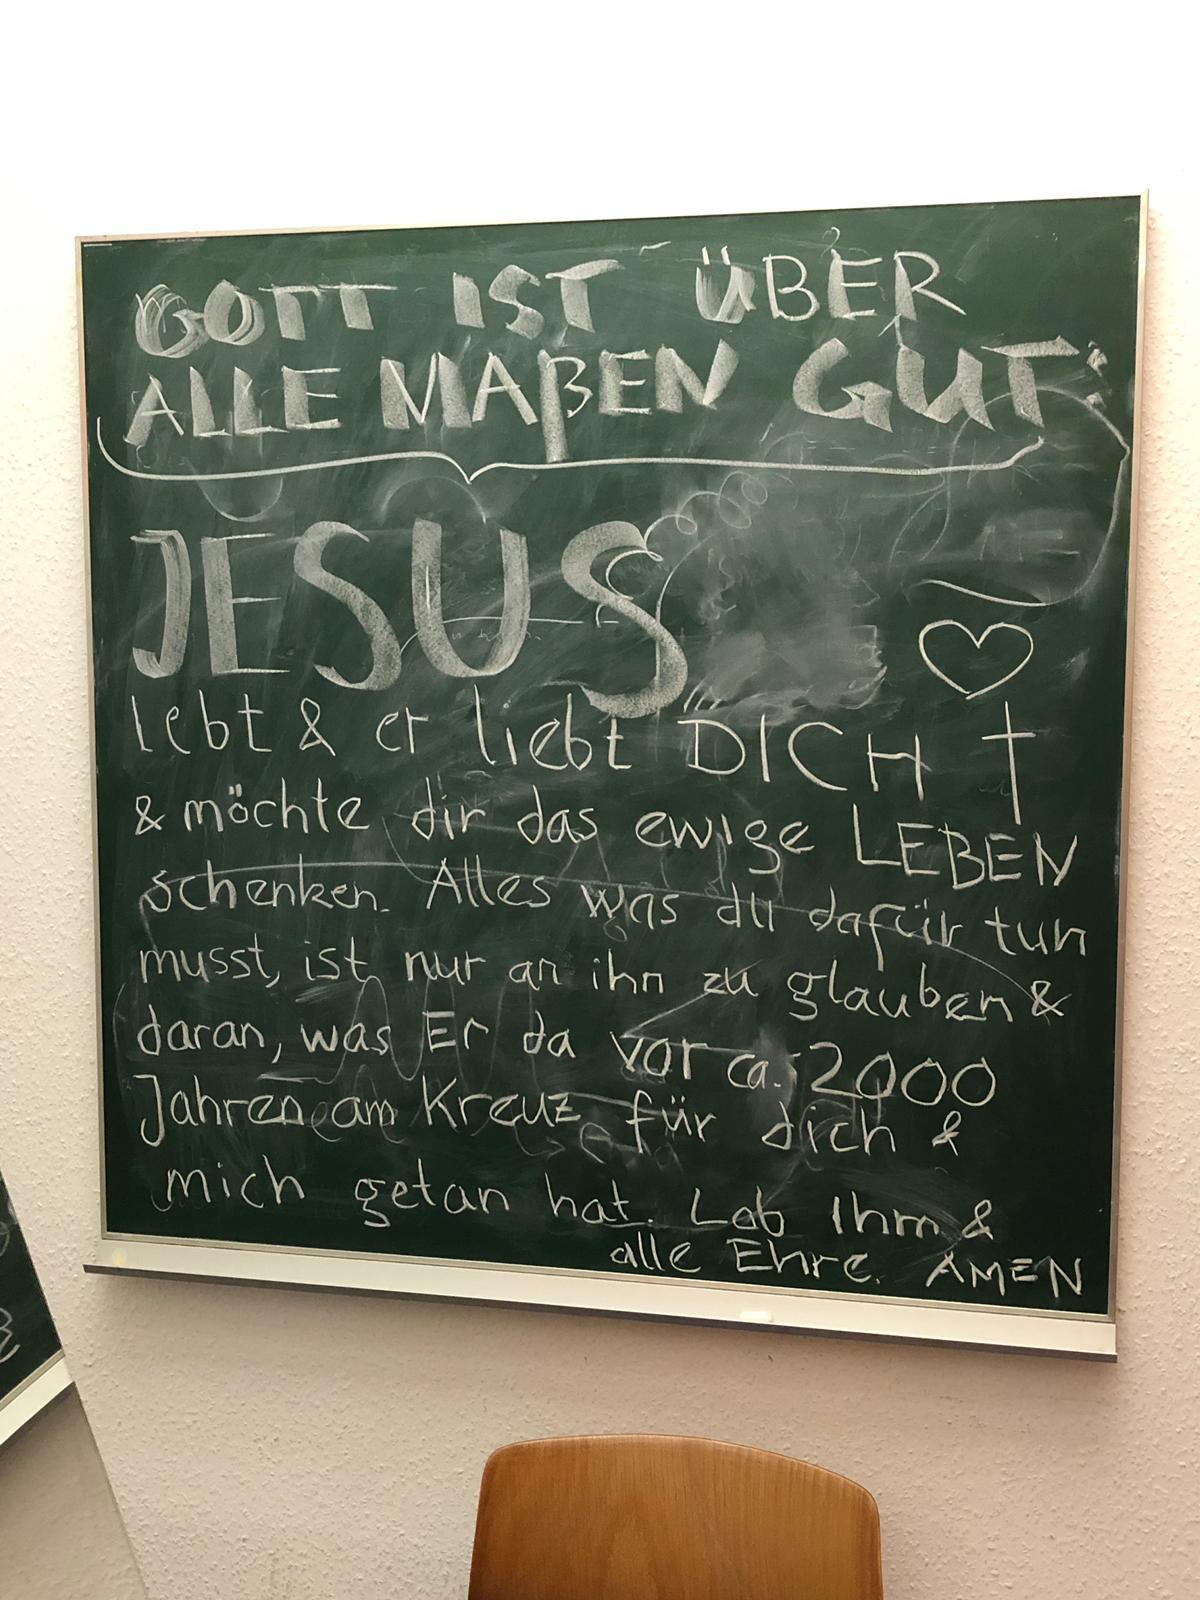 GOTT IST ÜBER
ALLE MAßEN GUT:
JESUS
lebt & er liebt DICH
& möchte dir das ewige LEBEN
schenken. Alles was du dafür tun
musst, ist nur an ihn zu glauben &
daran, was Er da vor ca. 2000
Jahren am Kreuz für dich &
mich getan hat. Lob Ihm &
alle Ehre. AMEN